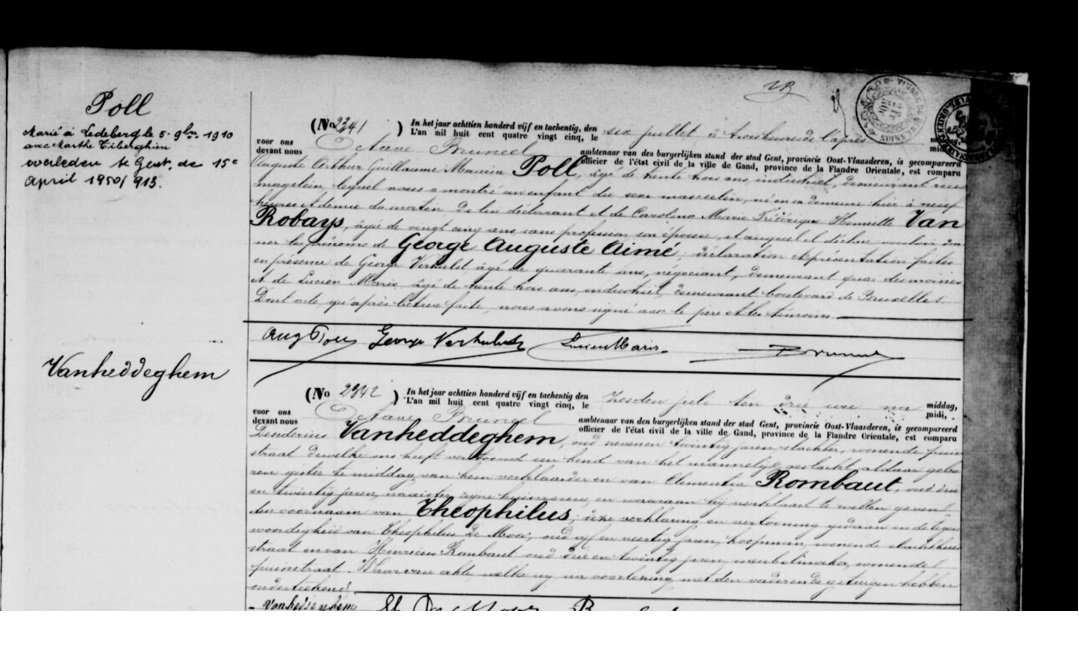 Poll
Marié à Ledeberg le 5 - 9bre 1910
avec Marthe Tiberghien
overleden te Gent de 15e
April 1950/913.
(No 2341) In het jaar achttien honderd vijf en tachentig, den
L'an mil huit cent quatre vingt cinq, le six juillet à trois heures de l'après
voor ons
devant nous Octave Bruneel ambtenaar van den burgerlijken stand der stad Gent, provincie Oost-Vlaanderen, is gecompareerd
officier de l'état civil de la ville de Gand, province de la Flandre Orientale, est comparu
Auguste Arthur Guillaume Maurice Poll, âgé de trente trois ans, industriel, demeurant rue
magelein, lequel nous a montré un enfant du sexe masculin, né en sa demeure hier à neuf
heures et demie du matin, de lui déclarant et de Caroline Marie Frédérique Henriette Van
Robays, âgée de vingt cinq ans, sans profession, son épouse, et auquel il déclare vouloir don
ner les prénoms de George Auguste Aimé; déclaration et présentation faites
en présence de George Verhulst âgé de quarante ans, négociant, demeurant quai des moines
et de Lucien Maris âgé de trente trois ans, industriel, demeurant boulevard de Bruxelles.
Dont acte, qu'après lecture faite, nous avons signé avec le père et les témoins.
Aug Poll George Verhulst Lucien Maris Bruneel
Vanheddeghem
(No 2342) In het jaar achttien honderd vijf en tachentig den
L'an mil huit cent quatre vingt cinq, le zesden juli ten drie ure na middag,
midi,
voor ons
devant nous Octave Bruneel ambtenaar van den burgerlijken stand der stad Gent, provincie Oost-Vlaanderen, is gecompareerd
officier de l'état civil de la ville de Gand, province de la Flandre Orientale, est comparu
Desiderius Vanheddeghem, oud zevenen twintig jaren, slachter, wonende
straat dewelke ons heeft vertoond een kind van het mannelijk geslacht, aldaar gebo
ren gister te middag, van hem verklaarder en van Clementia Rombaut, oud drie
en twintig jaren, naaister, zijne huisvrouw, en waaraan hij verklaart te willen geven
den voornaam van Théophilus; deze verklaring en vertooning gedaan in de tegen
woordigheid van Theophilus De Moor, oud vijf en veertig jaren, koopman, wonende
straat en van Henricus Rombaut oud drie en twintig jaren, meubelmaker, wonende
straat. Waarvan akte, welke wij na voorlezing met den vader en de getuigen hebben
onderteekend.
Vanheddeghem De Moor